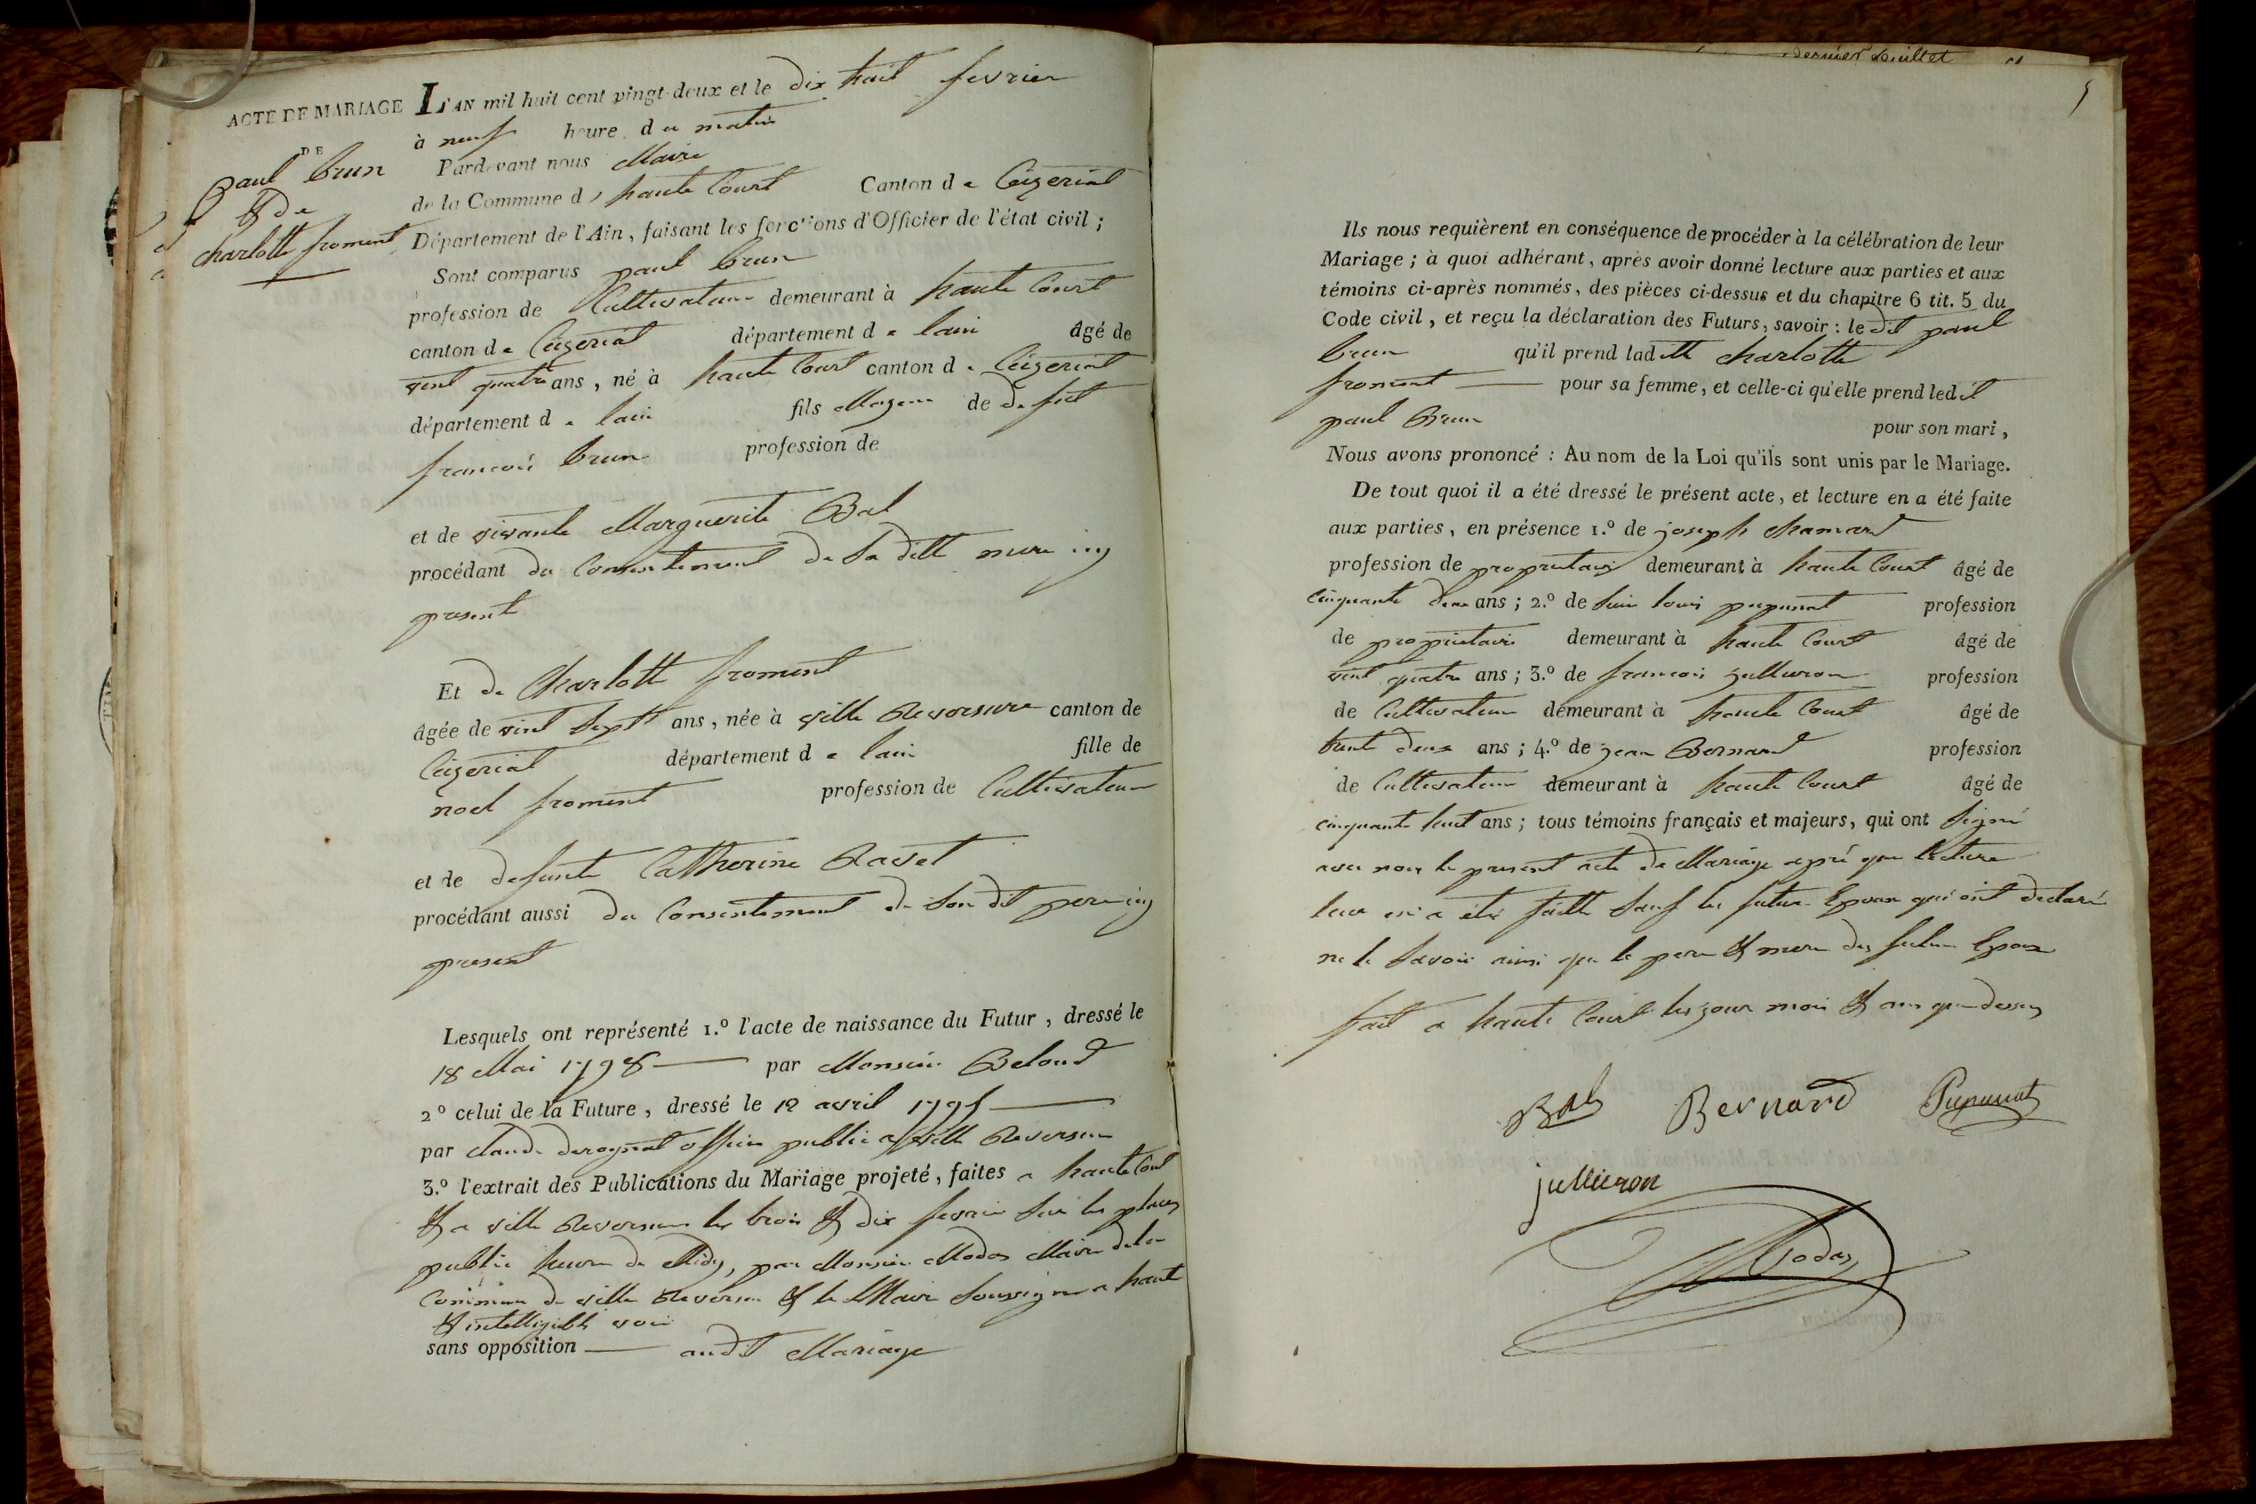 ACTE DE MARIAGE
DE
paul brun
& de
charlotte froment
L'AN mil huit cent vingt-deux et le dix huit fevrier
à neuf heure du matin
Pardevant nous Maire
de la Commune d, haute Court Canton de Ceizeriat
Département de l'Ain, faisant les fonctions d'Officier de l'état civil ;
Sont comparus paul brun
profession de Cultivateur demeurant à haute Court
canton de Ceizeriat département de lain âgé de
vint quatre ans, né à haute Court canton de Ceizeriat
département de lain fils Mageur de defint
francois brun profession de
et de vivante Marguerite Bal
procédant du Consentement de Sa ditte mere icy
present
Et de Charlotte froment
âgée de vint Sept ans, née à ville Reversure canton de
Ceizeriat département de lain fille de
noel froment profession de Cultivateur
et de defunte Catherine Ravet
procédant aussi du Consentement de Son dit pere icy
present
Lesquels ont représenté 1.º l'acte de naissance du Futur, dressé le
18 Mai 1798 par Monsieur Beloud
2º celui de la Future, dressé le 12 avril 1795
par Claude officier public a ville Reversure
3.º l'extrait des Publications du Mariage projeté, faites a haute Court
& a ville Reversure les trois & dix fevrier Sur les places
public heure de Midy, par Monsieur Modas Maire de la
Commune de ville Reversure & le Maire Soussigne a haut
& intelligible voix
sans opposition audit Mariage
dernier feuillet
5
Ils nous requièrent en conséquence de procéder à la célébration de leur
Mariage ; à quoi adhérant, après avoir donné lecture aux parties et aux
témoins ci-après nommés, des pièces ci-dessus et du chapitre 6 tit. 5 du
Code civil, et reçu la déclaration des Futurs, savoir : le dit paul
brun qu'il prend laditte Charlotte
froment pour sa femme, et celle-ci qu'elle prend ledit
paul Brun pour son mari,
Nous avons prononcé : Au nom de la Loi qu'ils sont unis par le Mariage.
De tout quoi il a été dressé le présent acte, et lecture en a été faite
aux parties, en présence 1.º de joseph Chamard
profession de proprietaire demeurant à haute Court âgé de
cinquante deux ans ; 2.º de louis pupunat profession
de proprietaire demeurant à haute Court âgé de
vint quatre ans ; 3.º de francois jullieron profession
de Cultivateur demeurant à haute Court âgé de
trente deux ans ; 4.º de jean Bernard profession
de Cultivateur demeurant à haute Court âgé de
cinquante huit ans ; tous témoins français et majeurs, qui ont Signé
avec nous le present acte de Mariage apré que lecture
leur en a été faitte Sauf les futur Epoux qui ont declaré
ne le Savoir ainsi que le pere & mere des futur Epoux
fait a haute Court les jour mois & ans que dessus
Bal Bernard Pupunat
jullieron
Modas